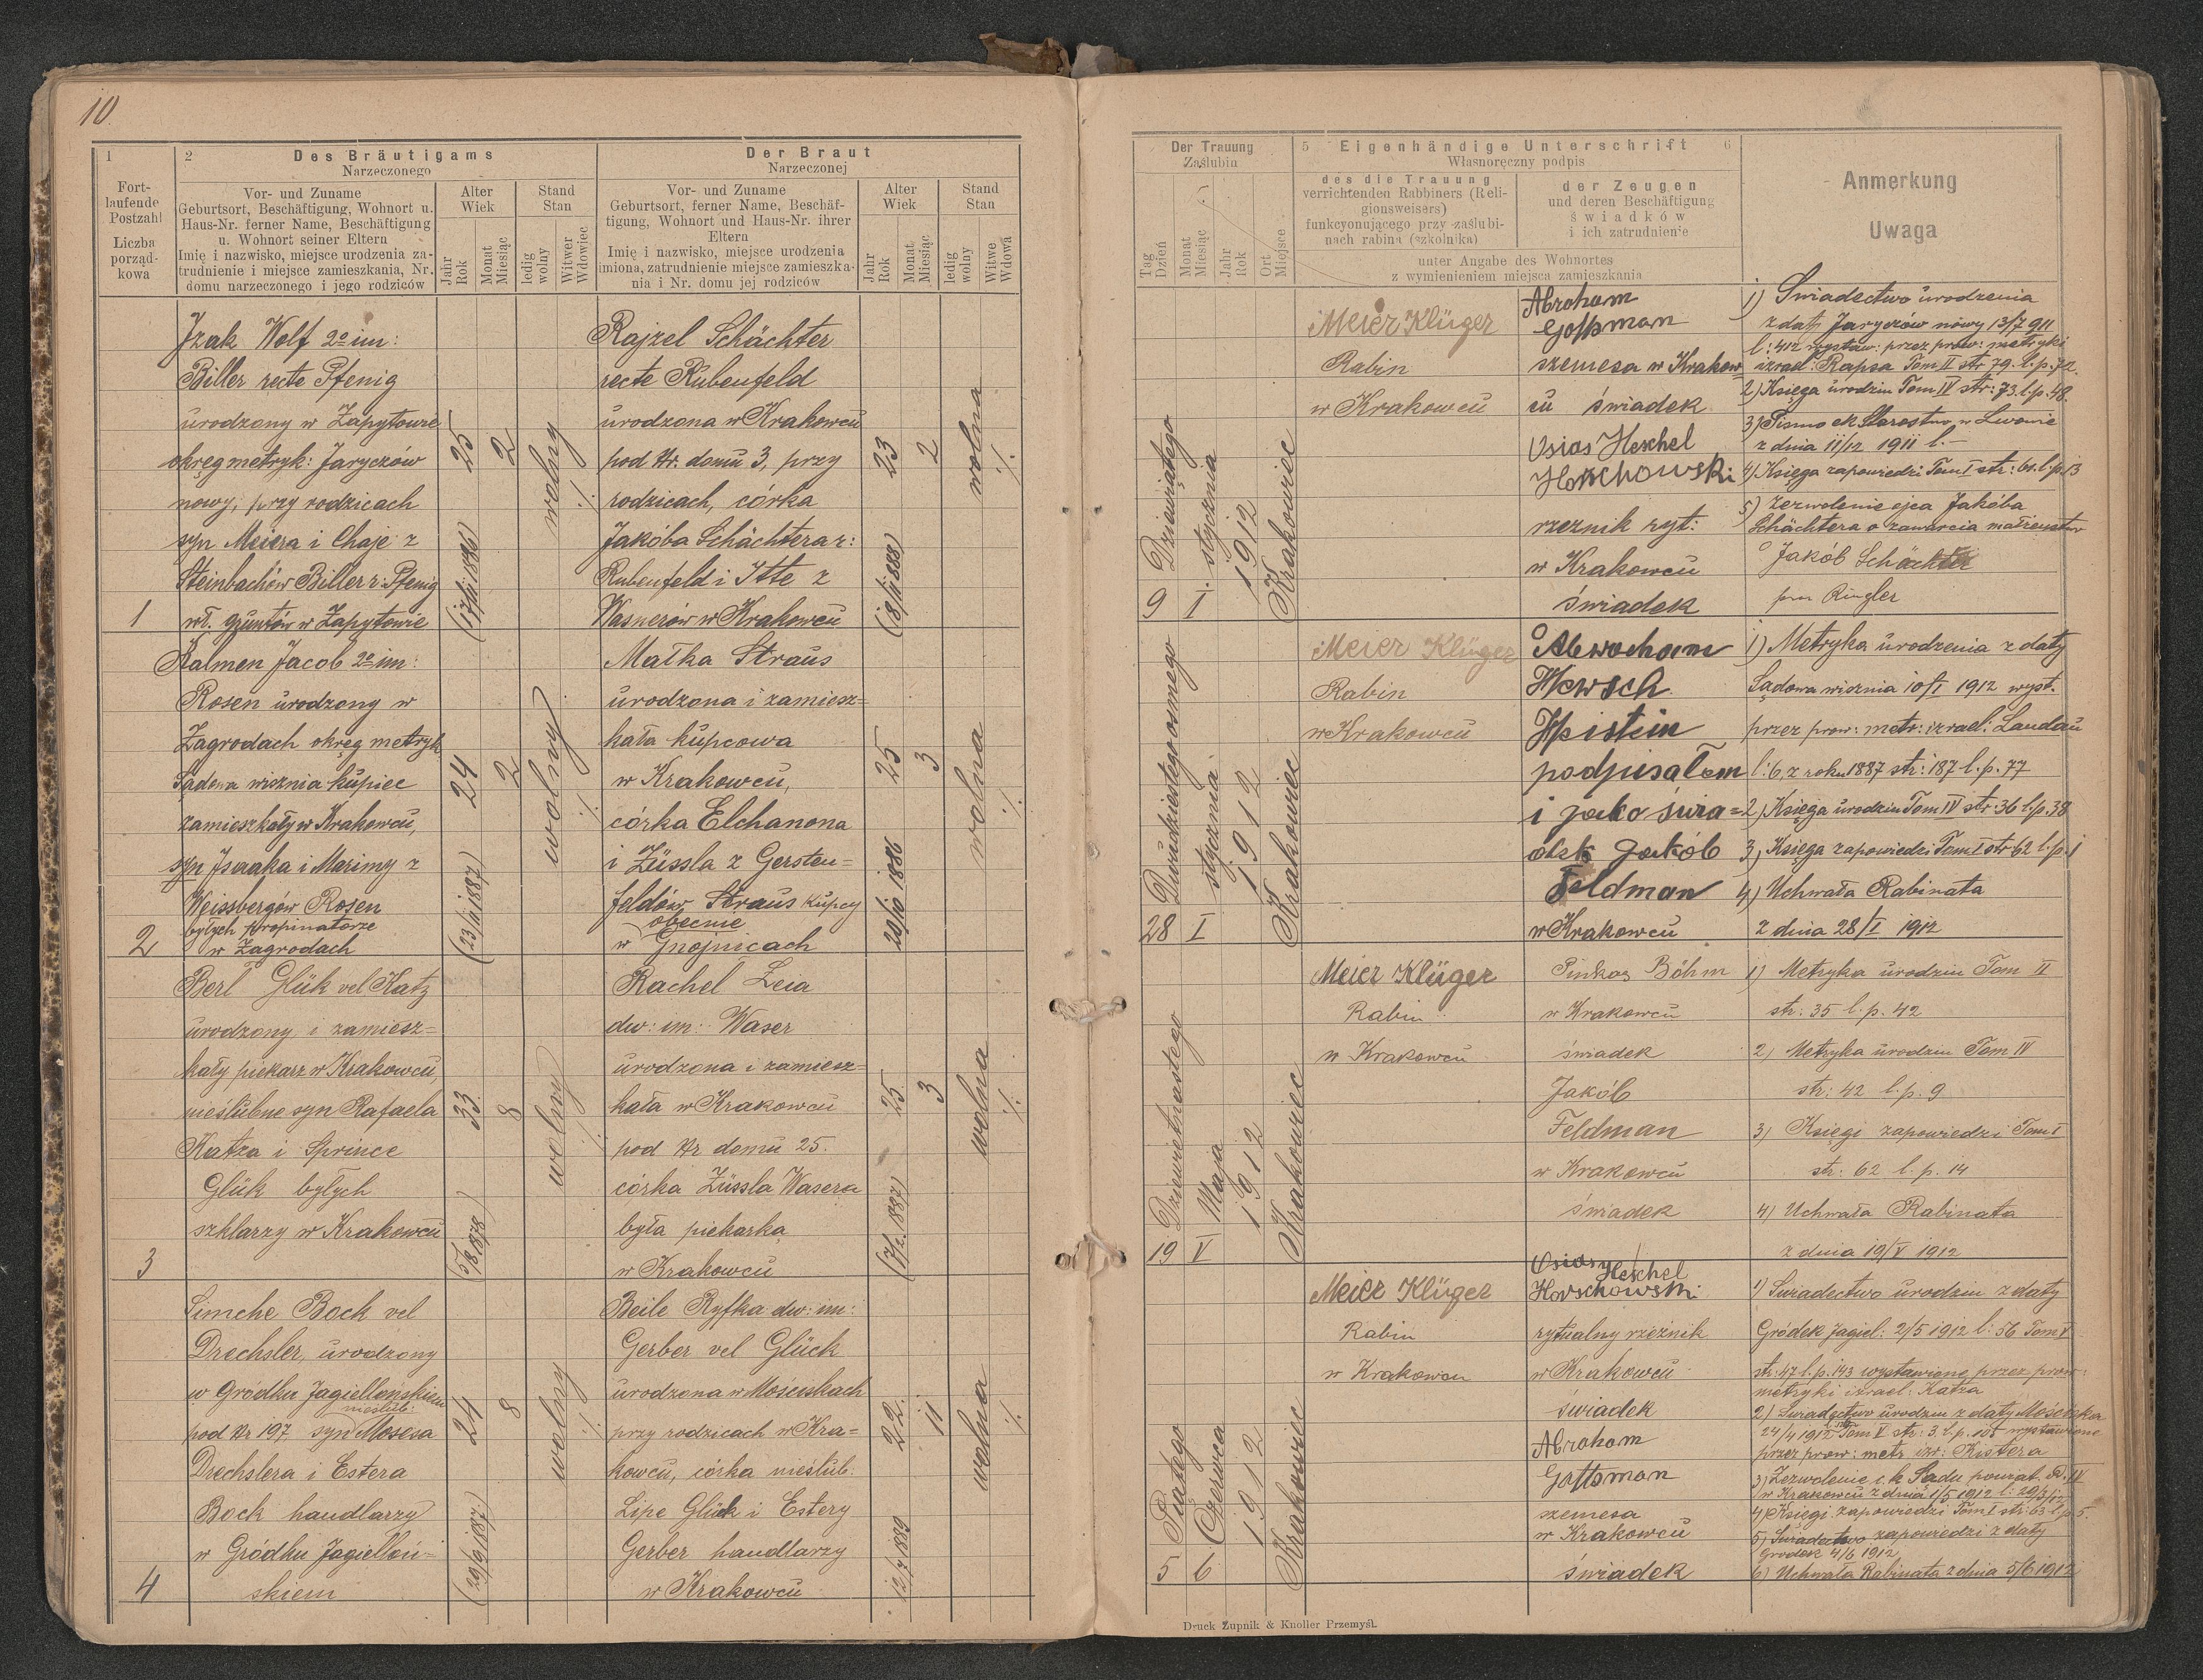 10
1
Fort-
laufende
Postzahl
Liczba
porząd-
kowa
2
Des Bräutigams
Narzeczonego
Vor- und Zuname
Geburtsort, Beschäftigung, Wohnort u.
Haus-Nr. ferner Name, Beschäftigung
u. Wohnort seiner Eltern
Imię i nazwisko, miejsce urodzenia za-
trudnienie i miejsce zamieszkania, Nr.
domu narzeczonego i jego rodziców
Alter
Wiek
Jahr
Rok
Monat
Miesiąc
Stand
Stan
ledig
wolny
Witwer
Wdowiec
Der Braut
Narzeczonej
Vor- und Zuname
Geburtsort, ferner Name, Beschäf-
tigung, Wohnort und Haus-Nr. ihrer
Eltern
Imię i nazwisko, miejsce urodzenia
imiona, zatrudnienie miejsce zamieszka-
nia i Nr. domu jej rodziców
Alter
Wiek
Jahr
Rok
Monat
Miesiąc
Stand
Stan
ledig
wolny
Witwe
Wdowa
Der Trauung
Zaślubin
Tag
Dzień
Monat
Miesiąc
Jahr
Rok
Ort
Miejsce
5 Eigenhändige Unterschrift 6
Własnoręczny podpis
des die Trauung
verrichtenden Rabbiners (Reli-
gionsweisers)
funkcyonującego przy zaślubi-
nach rabina (szkolnika)
der Zeugen
und deren Beschäftigung
świadków
i ich zatrudnienie
unter Angabe des Wohnortes
z wymienieniem miejsca zamieszkania
Anmerkung
Uwaga
Izak Wolf 2o im:
Biller recte Pfenig
urodzony w Zapytowie
okręg metryk: Jaryczów
nowy, przy rodzicach
syn Meiera i Chaje z
Steinbachów Biller r: Pfenig
wł. gruntów w Zapytowie
1
25
2
wolny
(17/11 1886)
Rajzel Schächter
recte Rubenfeld
urodzona w Krakowcu
pod Nr. domu 3, przy
rodzicach, córka
Jakóba Schächtera r:
Rubenfeld i Itte z
Wasnerów w Krakowcu
23
2
wolna
(8/11 888)
Dziewiątego
stycznia
1912
Krakowiec
9 I
Meier Klüger
Rabin
w Krakowcu
Abraham
Gottsman
szemesa w Krakow
cu świadek
Osias Heschel
Horschowski
rzeznik ryt:
w Krakowcu
świadek
1) Świadectwo urodzenia
z daty Jaryczów nowy 13/7 911
l: 412 wystaw: przez prow: metryki
izrael: Rapsa Tom II str 79. l.p. 72.
2) Księga urodzin Tom IV str: 73. l.p. 48.
3) Pismo ck Starostwo w Lwowie
z dnia 11/12 1911 l.-
4) Księga zapowiedzi Tom I str: 61. l.p. 13
5) Zezwolenie ojca Jakóba
Schächtera o zawarcia małżeństw
Jakób Schächter
Ringler
Kalmen Jacob 2o im:
Rosen urodzony w
Zagrodach okręg metryk
Sądowa wisznia kupiec
zamieszkały w Krakowcu,
syn Isaaka i Marimy z
Weissbergów Rosen
byłych propinatorze
w Zagrodach
2
24
2
wolny
(23/11 1887)
Małka Straus
urodzona i zamiesz=
kała kupcowa
w Krakowcu,
córka Elchanona
i Züssla z Gersten=
feldów Straus kupcy
obecnie
w Gnojnicach
25
3
wolna
20/10 1886
Dwudziestego osmego
stycznia
1912
Krakowiec
28 I
Meier Klüger
Rabin
w Krakowcu
Abwraham
Hewsch
Hpistein
podpisałem
i jako świa=
dek Jakób
Feldman
w Krakowcu
1) Metryka urodzenia z daty
Sądowa wisznia 10/I 1912 wyst.
przez prow: metr: izrael: Landau
l: 6, z roku 1887 str: 187 l.p. 77
2) Księga urodzin Tom IV str: 36 l.p. 38
3) Księga zapowiedzi Tom I str 62 l.p. 1
4) Uchwała Rabinata
z dnia 28/I 1912
Berl Glük vel Katz
urodzony i zamiesz=
kały piekarz w Krakowcu,
nieślubne syn Rafaela
Katza i Sprince
Glük byłych
szklarzy w Krakowcu
3
33
8
wolny
(5/8 1878)
Rachel Leia
dw: im: Waser
urodzona i zamiesz=
kała w Krakowcu
pod Nr domu 25.
córka Züssla Wasera
była piekarka
w Krakowcu
25
3
wolna
(17/2 1887)
Dziewietnastego
Maja
1912
Krakowiec
19 V
Meier Klüger
Rabin
w Krakowcu
Pinkas Böhm
w Krakowcu
świadek
Jakób
Feldman
w Krakowcu
świadek
1) Metryka urodzin Tom II
str: 35 l. p. 42
2) Metryka urodzin Tom IV
str: 42 l. p. 9
3) Księgi zapowiedzi Tom I
str: 62 l. p. 14
4) Uchwała Rabinata
z dnia 19/V 1912
Simche Bock vel
Drechsler, urodzony
w Gródku Jagiellońskiem
nieślub:
pod Nr 197 syn Mosesa
Drechslera i Estera
Bock handlarzy
w Gródku Jagielloń=
skiem
4
24
8
wolny
(29/9 1887)
Beile Ryfka dw: im:
Gerber vel Glück
urodzona w Mościskach
przy rodzicach w Kra=
kowcu, córka nieślub:
Lipe Glück i Estery
Gerber handlarzy
w Krakowcu
22.
11
wolna
12/7 1889
Piątego
Czerwca
1912
Krakowiec
5 6
Meier Klüger
Rabin
w Krakowcu
Osias Heschel
Horschowski
rytualny rzeźnik
w Krakowcu
świadek
Abraham
Gottsman
szemesa
w Krakowcu
świadek
1) Świadectwo urodzin z daty
Gródek Jagiel: 2/5 1912 l: 56 Tom V
str: 47 l. p. 143 wystawione przez prow:
metryki izrael: Katza
2) Świadectwo urodzin z daty Mościska
24/4 1912 Tom V str: 3. l. p. 105 wystawione
przez prow: metr. izr: Kistera
3) Zezwolenie c. k. Sadu powiat. Od. IV
w Krakowcu z dnia 1/5 1912
4) Księgi zapowiedzi Tom I str: 63 l. p. 5.
5) Świadectwo zapowiedzi z daty
Grodek 4/6 1912
6) Uchwała Rabinata z dnia 5/6 1912
Druck Żupnik & Knoller Przemyśl.